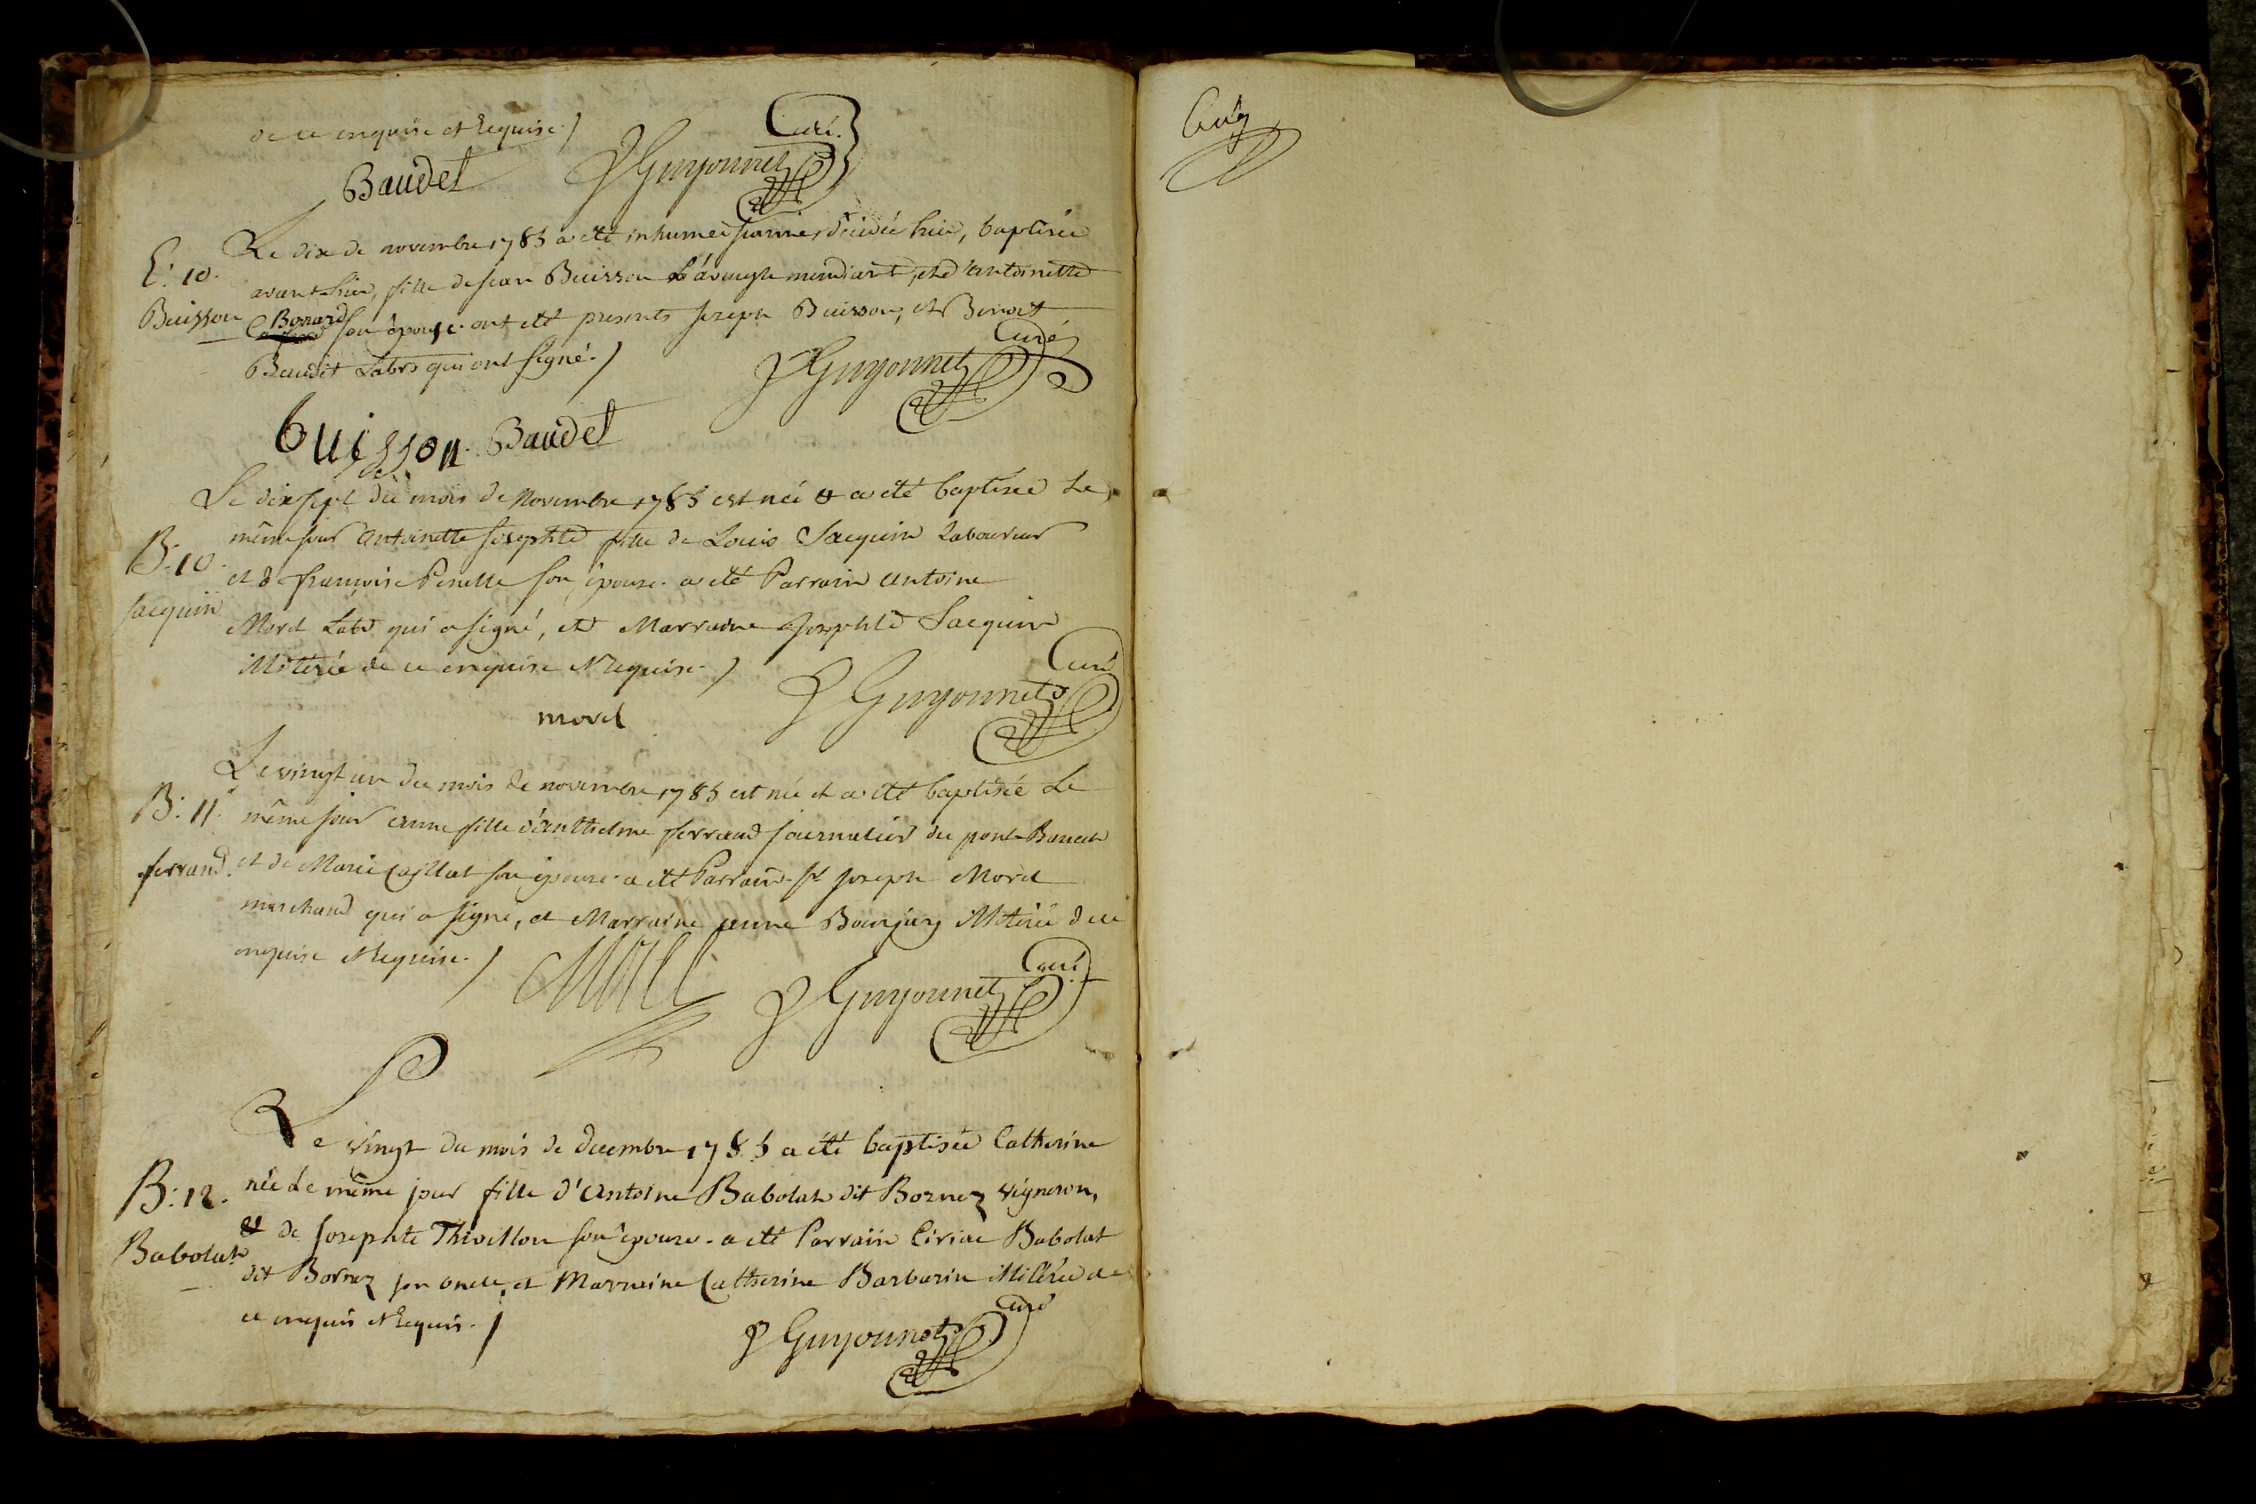 de ce enquise et Requise./
Baudet
J Guyonnet Curé.
Le dix de novembre 1785 a été inhumée jeanne, décédée hier, baptisée
E: 10.
avant hier, fille de jean Buisson L'aveugle mendiant, et d'antoinette
Buisson
Bonard son épouse. ont été presents joseph Buisson, et Benoit
Baudet Labrs qui ont signé./
J Guyonnet Curé
buisson. Baudet
Le dix sept du mois de Novembre 1785 est née et a été baptisée Le
même jour antoinette josephte fille de Louis Jacquin Laboureur
B: 10.
et de françoise Perille son épouse. a été Parrain antoine
Jacquin
Morel Labr qui a signé, et Marraine josephte Jacquin
illitérée de ce enquise et Requise./
morel
J Guyonnet Curé
Le vingt un du mois de novembre 1785 est née et a été baptisée Le
B: 11.
même jour anne fille d'anthelme ferrand journalier du pont
ferrand.
et de Marie Caillat son épouse. a été Parrain Sr joseph Morel
marchand qui a signé, et Marraine anne illitérée de ce
enquise et Requise./
Morel
J Guyonnet Curé
Le vingt du mois de decembre 1785 a été baptisée Catherine
B: 12.
née Le même jour fille d'antoine Babolat dit Bornez vigneron,
Babolat
et de josephte Thivillon son épouse. a été Parrain Ciriac Babolat
dit Bornez son oncle, et Marraine Catherine Barbarin illiterée de
ce enquis et Requis./
J Guyonnet Curé